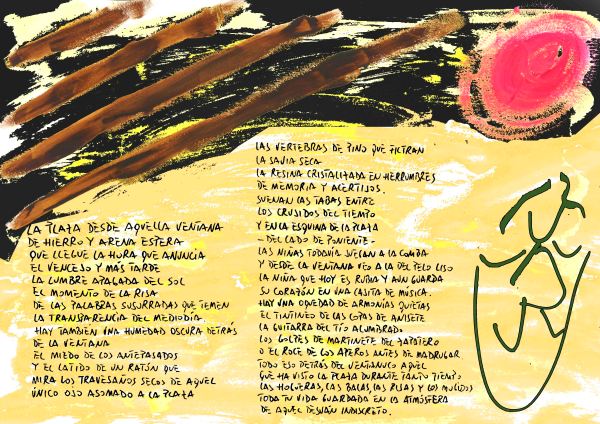 LA PLAZA DESDE AQUELLA VENTANA
DE HIERRO Y ARENA ESPERA
QUE LLEGUE LA HORA QUE ANUNCIA
EL VENCEJO Y MÁS TARDE
LA LUMBRE APAGADA DEL SOL
EL MOMENTO DE LA RISA
DE LAS PALABRAS SUSURRADAS QUE TEMEN
LA TRANSPARENCIA DEL MEDIODÍA.
HAY TAMBIÉN UNA HUMEDAD OSCURA DETRÁS
DE LA VENTANA
EL MIEDO DE LOS ANTEPASADOS
Y EL LATIDO DE UN RATÓN QUE
MIRA LOS TRAVESAÑOS SECOS DE AQUEL
ÚNICO OJO ASOMADO A LA PLAZA
LAS VERTEBRAS DE PINO QUE FILTRAN
LA SAVIA SECA
LA RESINA CRISTALIZADA EN HERRUMBRES
DE MEMORIA Y ACERTIJOS.
SUENAN LAS TABAS ENTRE
LOS CRUJIDOS DEL TIEMPO
Y EN LA ESQUINA DE LA PLAZA
- DEL LADO DE PONIENTE -
LAS NIÑAS TODAVÍA JUEGAN A LA COMBA
Y DESDE LA VENTANA VEO A LA DEL PELO LISO
LA NIÑA QUE HOY ES RUBIA Y AUN GUARDA
SU CORAZÓN EN UNA CAJITA DE MÚSICA.
HAY UNA OQUEDAD DE ARMONÍAS QUIETAS
EL TINTINEO DE LAS COPAS DE ANISETE
LA GUITARRA DEL TÍO ALUMBRADO
LOS GOLPES DE MARTINETE DEL ZAPATERO
O EL ROCE DE LOS APEROS ANTES DE MADRUGAR.
TODO ESO DETRÁS DEL VENTANUCO AQUEL
QUE HA VISTO LA PLAZA DURANTE TANTO TIEMPO
LAS HOGUERAS, LAS BALAS, LAS RISAS Y LOS
TODA TU VIDA GUARDADA EN LA ATMÓSFERA
DE AQUEL DESVÁN INDISCRETO.